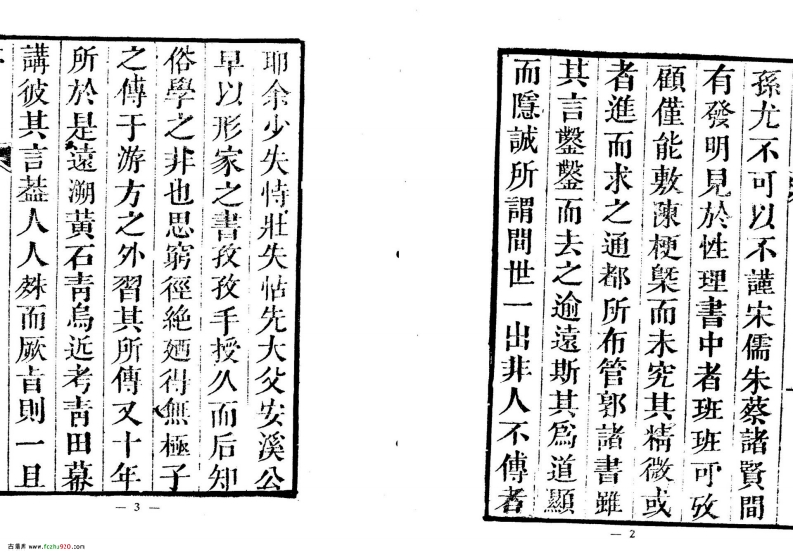 孫尤不可以不謹宋儒朱蔡諸賢間
有發明見於性理書中者班班可攷
顧僅能敷陳梗槩而未究其精微或
者進而求之通都所布管郭諸書雖
其言鑿鑿而去之逾遠斯其爲道顯
而隱誠所謂間世一出非人不傳者
— 2
耶余少失恃壯失怙先大父安溪公
早以形家之書孜孜手授久而后知
俗學之非也思窮徑絶廼得無極子
之傳于游方之外習其所傳又十年
所於是遠溯黃石靑烏近考靑田幕
講彼其言葢人人殊而厥旨則一且
— 3 —
www.fczhu920.com